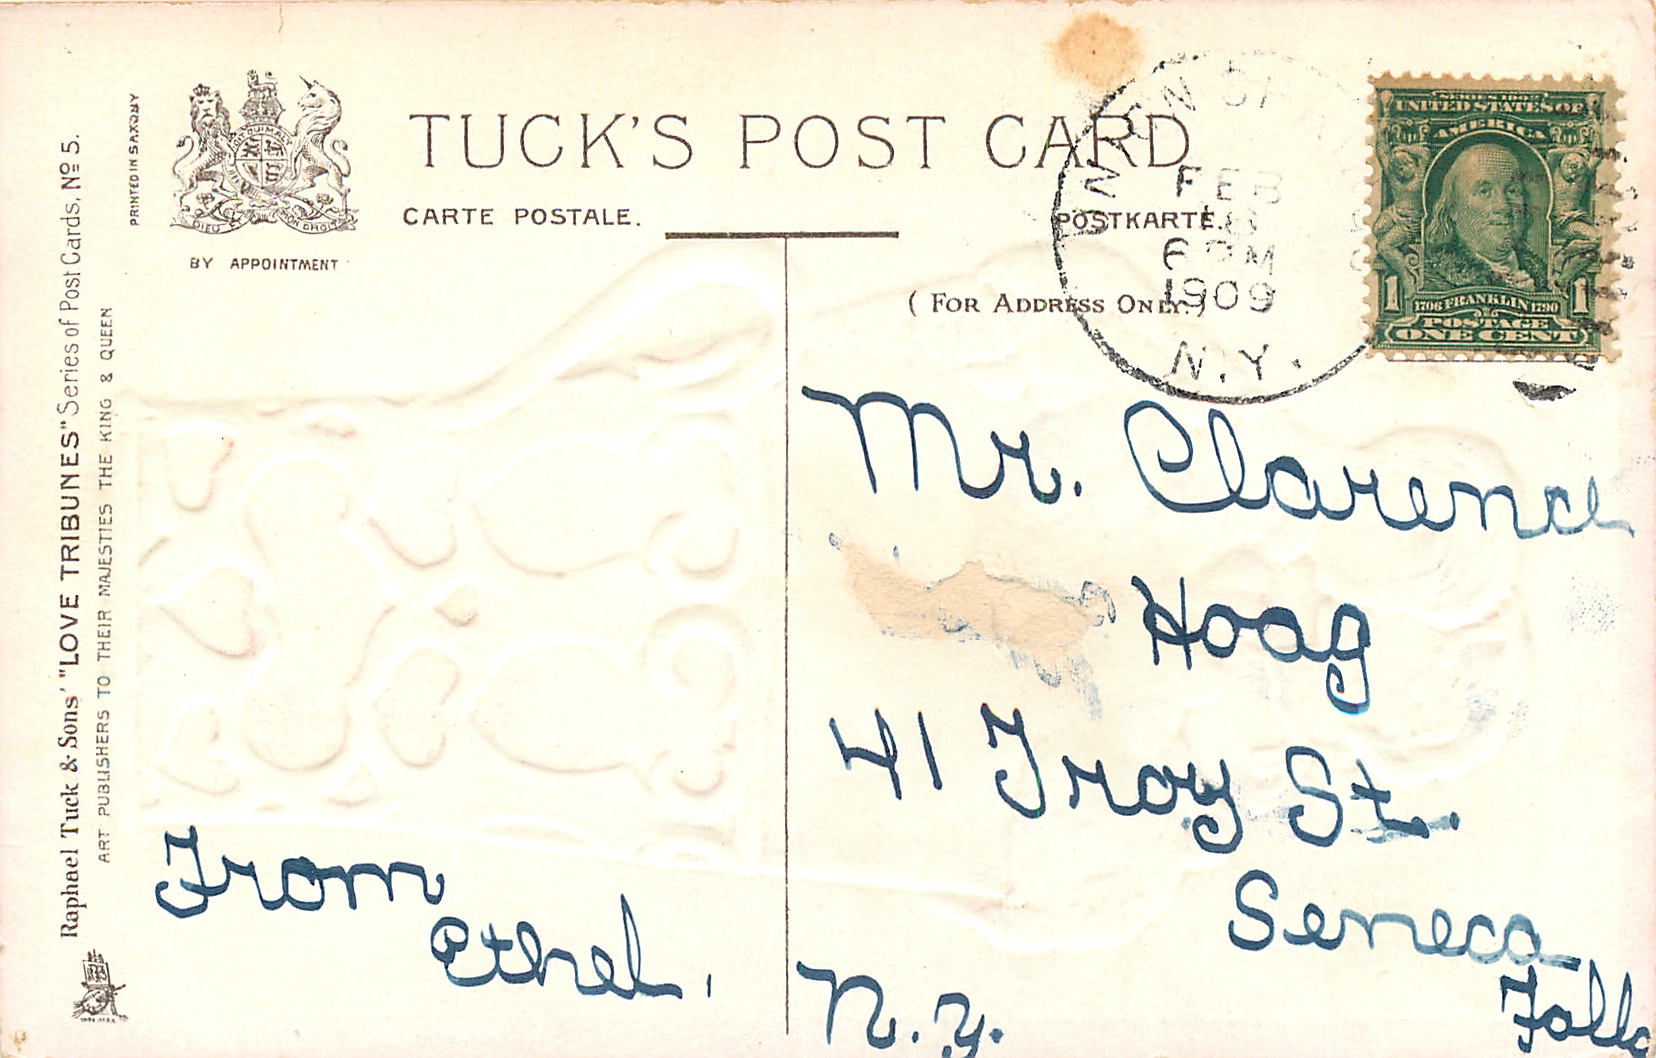 TUCK'S POST CARD
CARTE POSTALE.
POSTKARTE.
(FOR ADDRESS ONLY.)
PRINTED IN SAXONY
DIEU ET MON DROIT
BY APPOINTMENT
Raphael Tuck & Sons' "LOVE TRIBUNES" Series of Post Cards, Nº 5.
ART PUBLISHERS TO THEIR MAJESTIES THE KING & QUEEN
FEB
6 PM
1909
N.Y.
UNITED STATES OF
AMERICA
1 1706 FRANKLIN 1790 1
POSTAGE
ONE CENT
Mr. Clarence
Hoag
41 Troy St.
Seneca
Falls
N.Y.
From
Ethel.